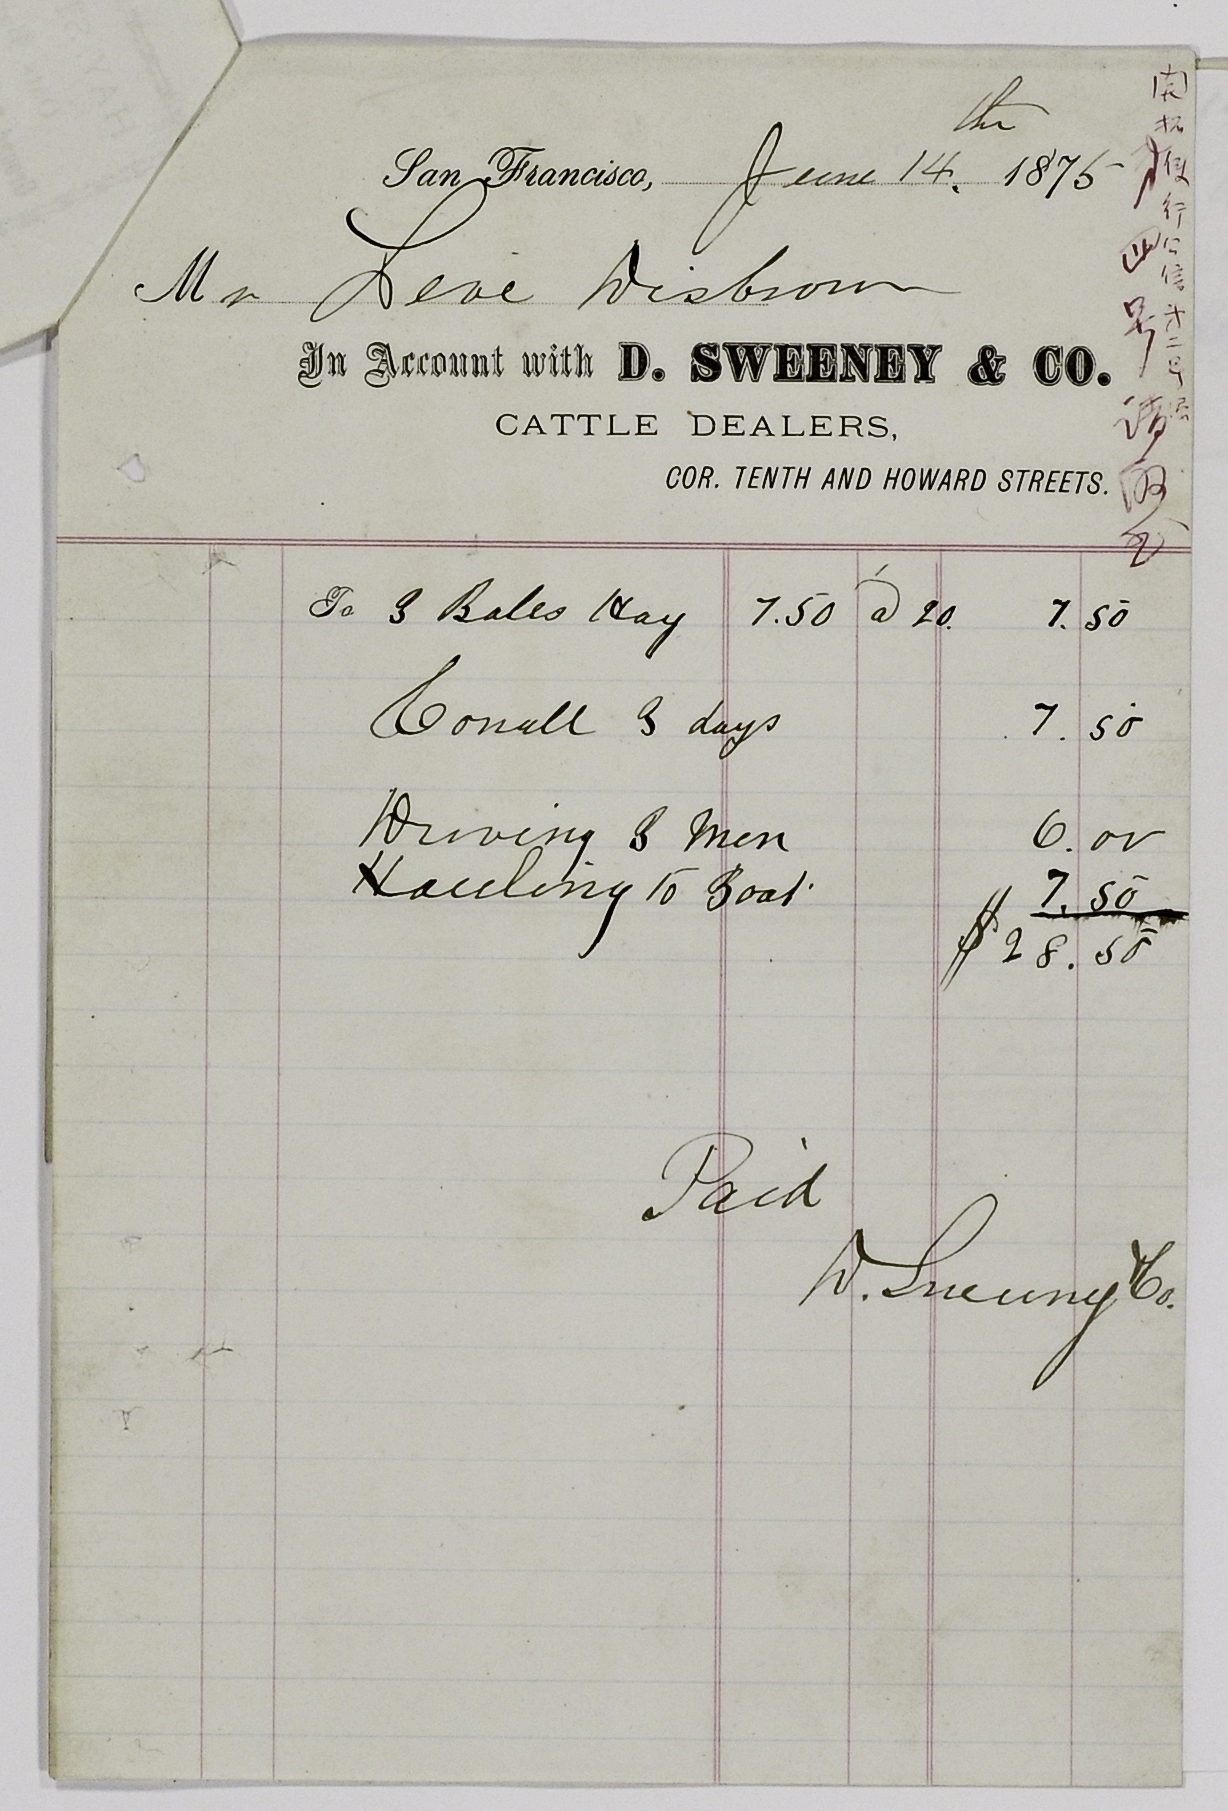 San Francisco, June 14th 1875
Mr Leve Wisbrow
In Account with D. SWEENEY & CO.
CATTLE DEALERS,
COR. TENTH AND HOWARD STREETS.
To 3 Bales Hay 7.50 @ 20. 7.50
Corrall 3 days 7.50
Driving 3 Men 6.00
Hauling to Boat 7.50
$28.50
Paid
D. Sweeny & Co.
四号
行
信
二号